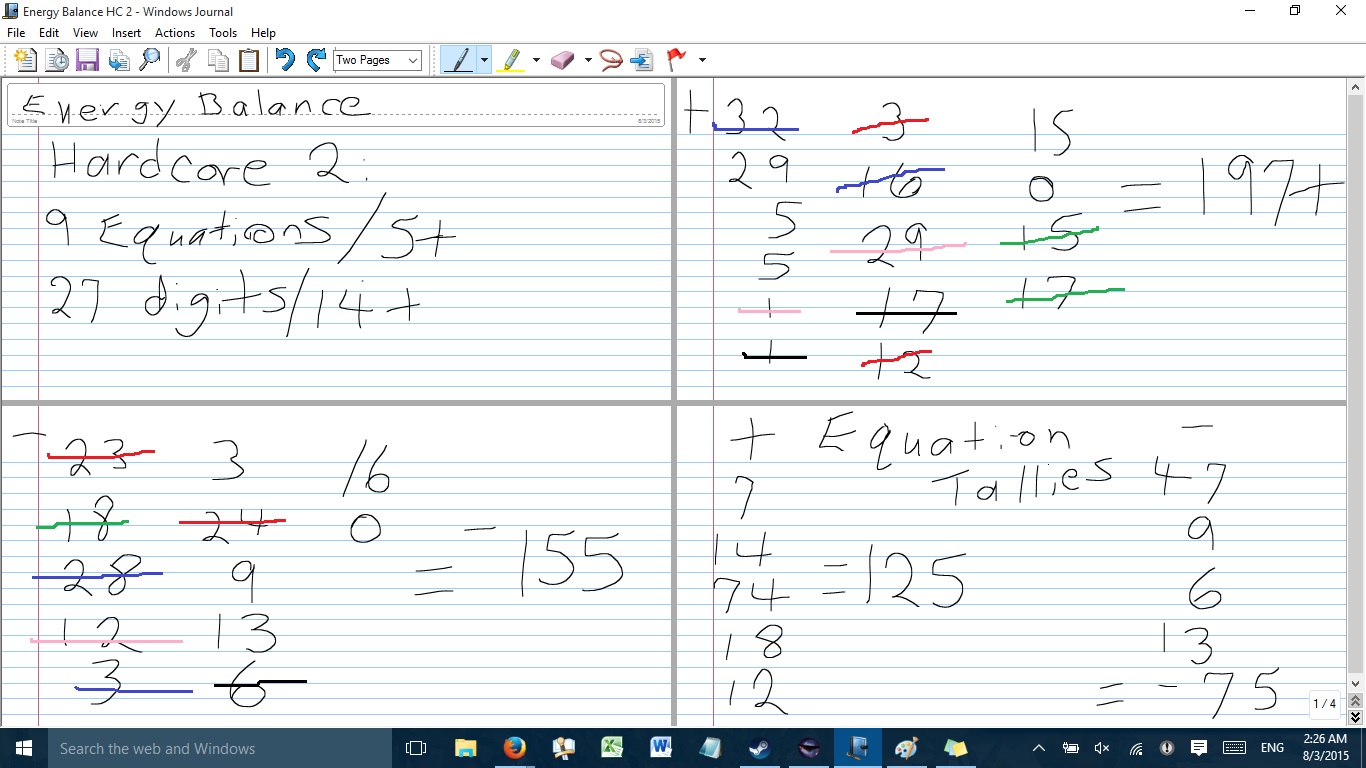 Energy Balance HC 2 - Windows Journal
File Edit View Insert Actions Tools Help
Two Pages
Energy Balance
Note Title
8/3/2015
Hardcore 2:
9 Equations/5+
27 digits/14+
+32 3 15
29 16 0 = 197+
5 29 15
5 17 17
1 12
1
- 23 3 16
18 24 0 = -155
28 9
12 13
3 6
+ Equation -
Tallies
7 47
14 9
74 = 125 6
18 13
12 = -75
1 / 4
Search the web and Windows
ENG
2:26 AM
8/3/2015